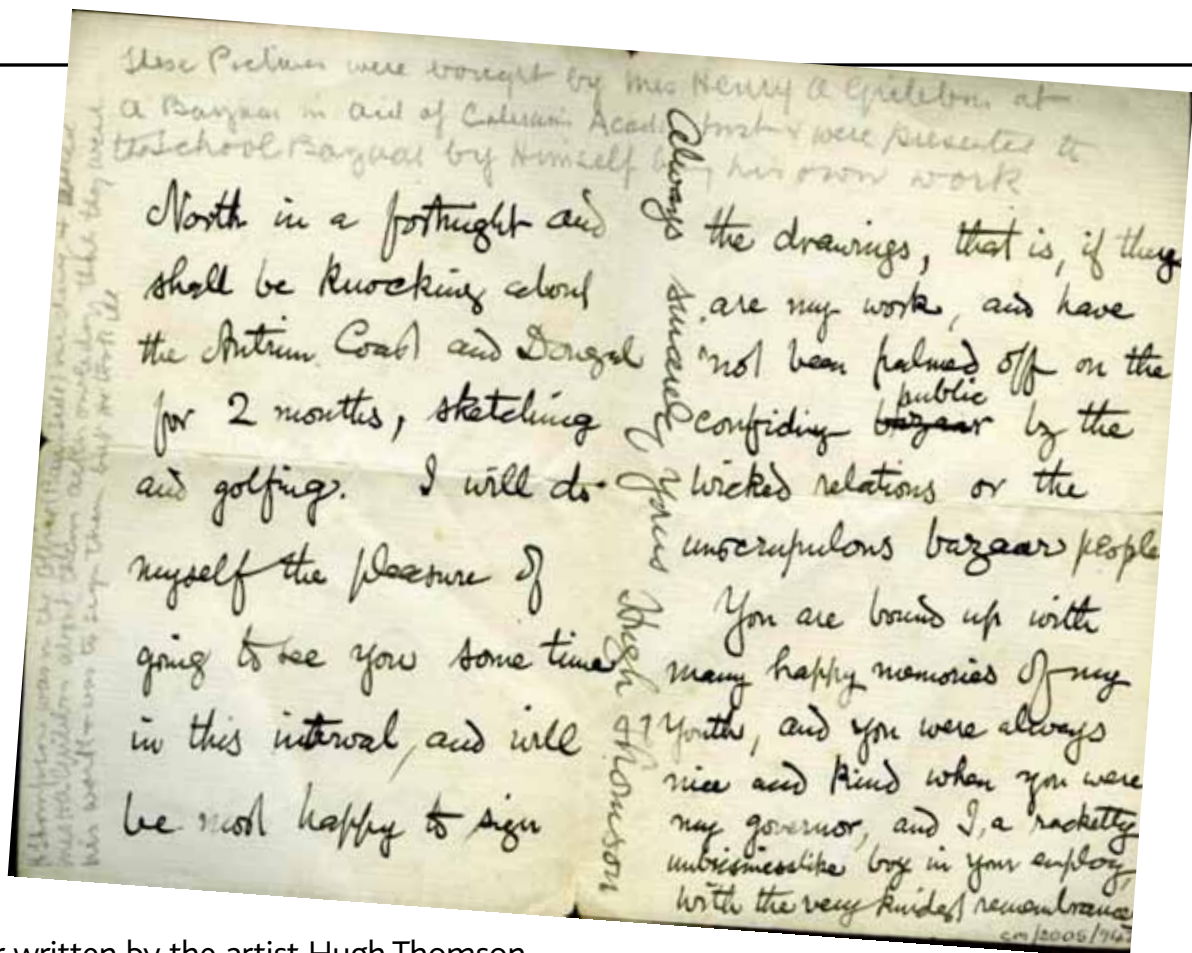 These Pictures were bought by Mrs Henry A at
a Bazaar in aid of Academy & were presented to
the School Bazaar by Himself his own work
North in a fortnight and
shall be knocking about
the Antrim Coast and Donegal
for 2 months, sketching
and golfing. I will do
myself the pleasure of
going to see you some time
in this interval, and will
be most happy to sign
the drawings, that is, if they
are my work, and have
not been palmed off on the
public
confiding bazaar by the
wicked relations or the
unscrupulous bazaar people
You are bound up with
many happy memories of my
Youth, and you were always
nice and kind when you were
my governor, and I, a racketty
unbusinesslike boy in your employ,
with the very kindest remembrance
Always sincerely yours Hugh Thomson
cm/2005/747
written by the artist Hugh Thomson